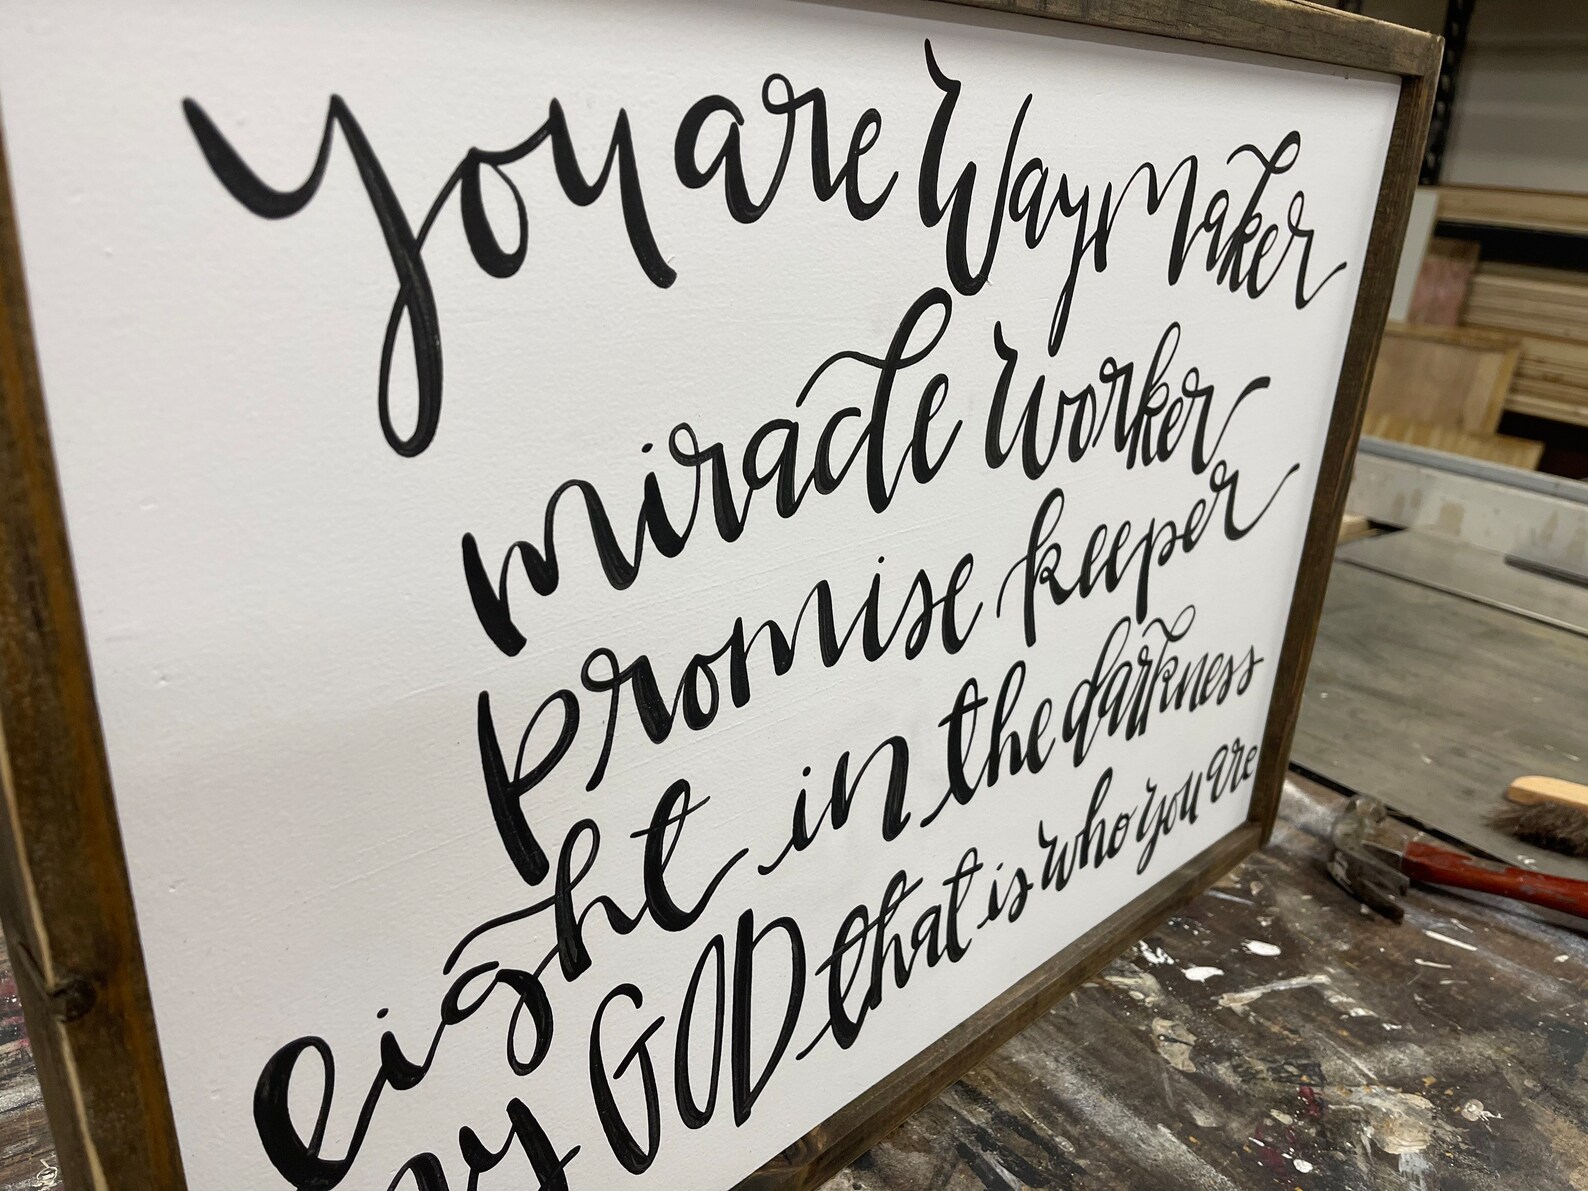 You are WayMaker
miracle worker
promise keeper
light in the darkness
my GOD that is who you are